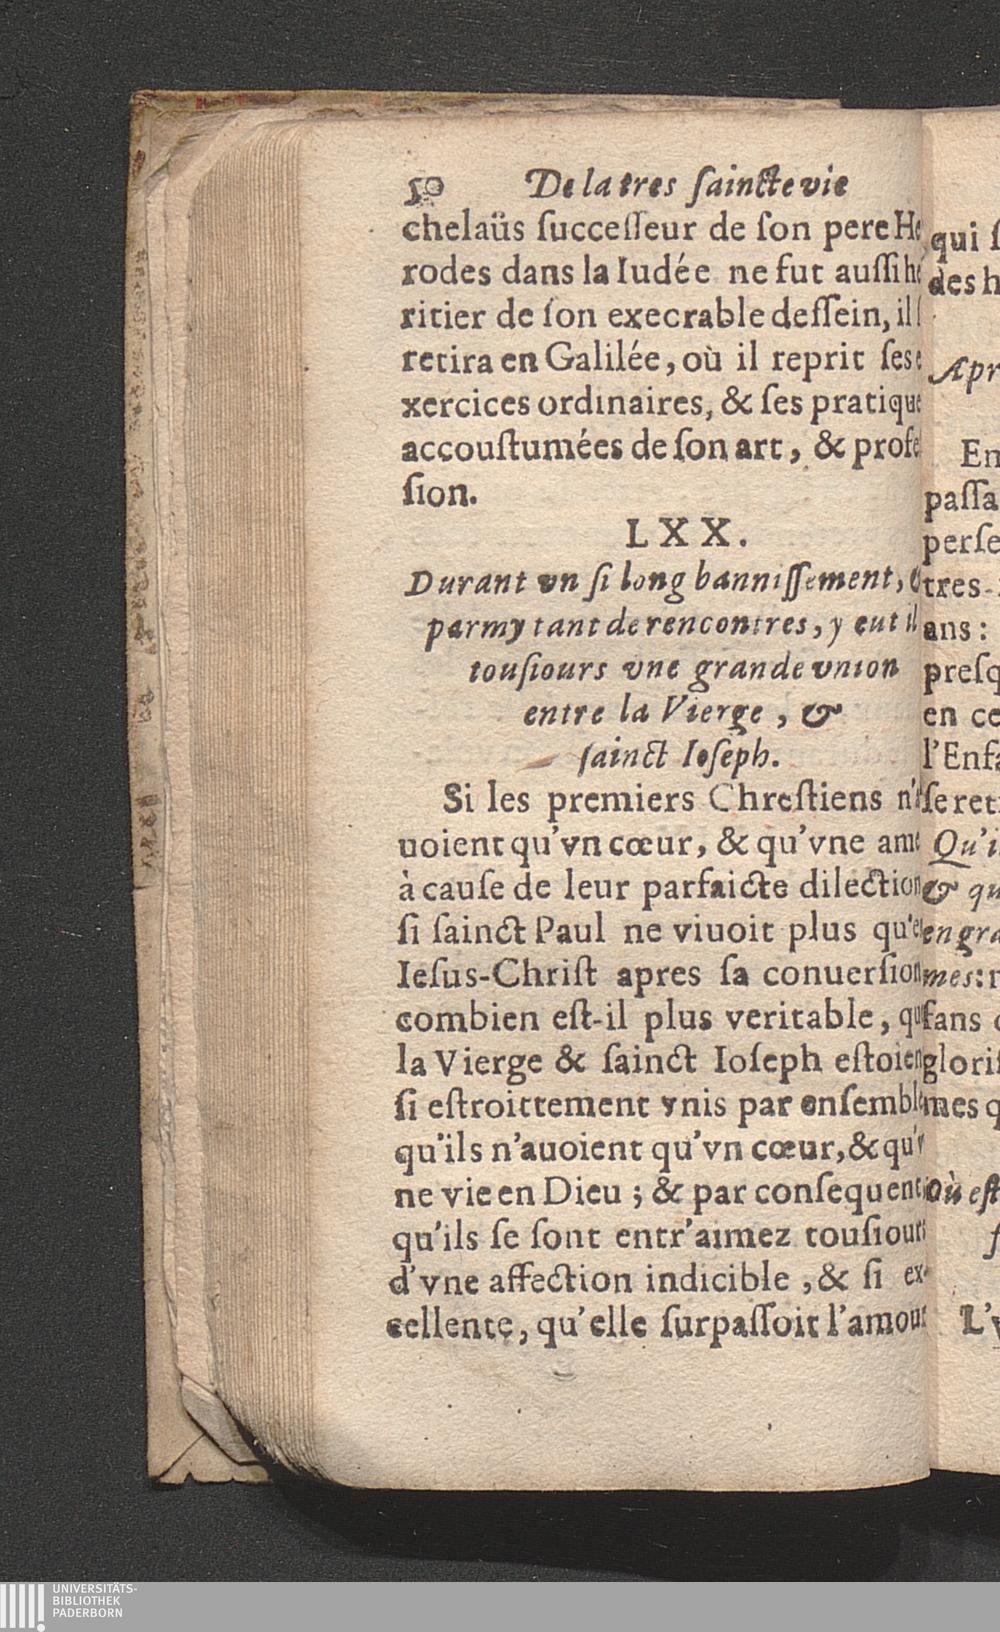 50 De la tres saincte vie
chelaüs successeur de son pere He
rodes dans la Iudée ne fut aussi he
ritier de son execrable dessein, il s
retira en Galilée, où il reprit ses e
xercices ordinaires, & ses pratique
accoustumées de son art, & profe
sion.
LXX.
Durant vn si long bannissement, &
parmy tant de rencontres, y eut il
tousiours vne grande vnion
entre la Vierge, &
sainct Ioseph.
Si les premiers Chrestiens n'a
uoient qu'vn cœur, & qu'vne ame
à cause de leur parfaicte dilection
si sainct Paul ne viuoit plus qu'en
Iesus-Christ apres sa conuersion
combien est-il plus veritable, que
la Vierge & sainct Ioseph estoien
si estroittement vnis par ensemble
qu'ils n'auoient qu'vn cœur, & qu'v
ne vie en Dieu ; & par consequent
qu'ils se sont entr'aimez tousiours
d'vne affection indicible, & si ex-
cellente, qu'elle surpassoit l'amour
qui s
des h
Apr
En
passa
perse
tres-
ans :
presq
en ce
l'Enfa
se reti
Qu'il
& qu
en gra
mes: r
fans
glorif
mes q
Où est
L'v
UNIVERSITÄTS-
BIBLIOTHEK
PADERBORN